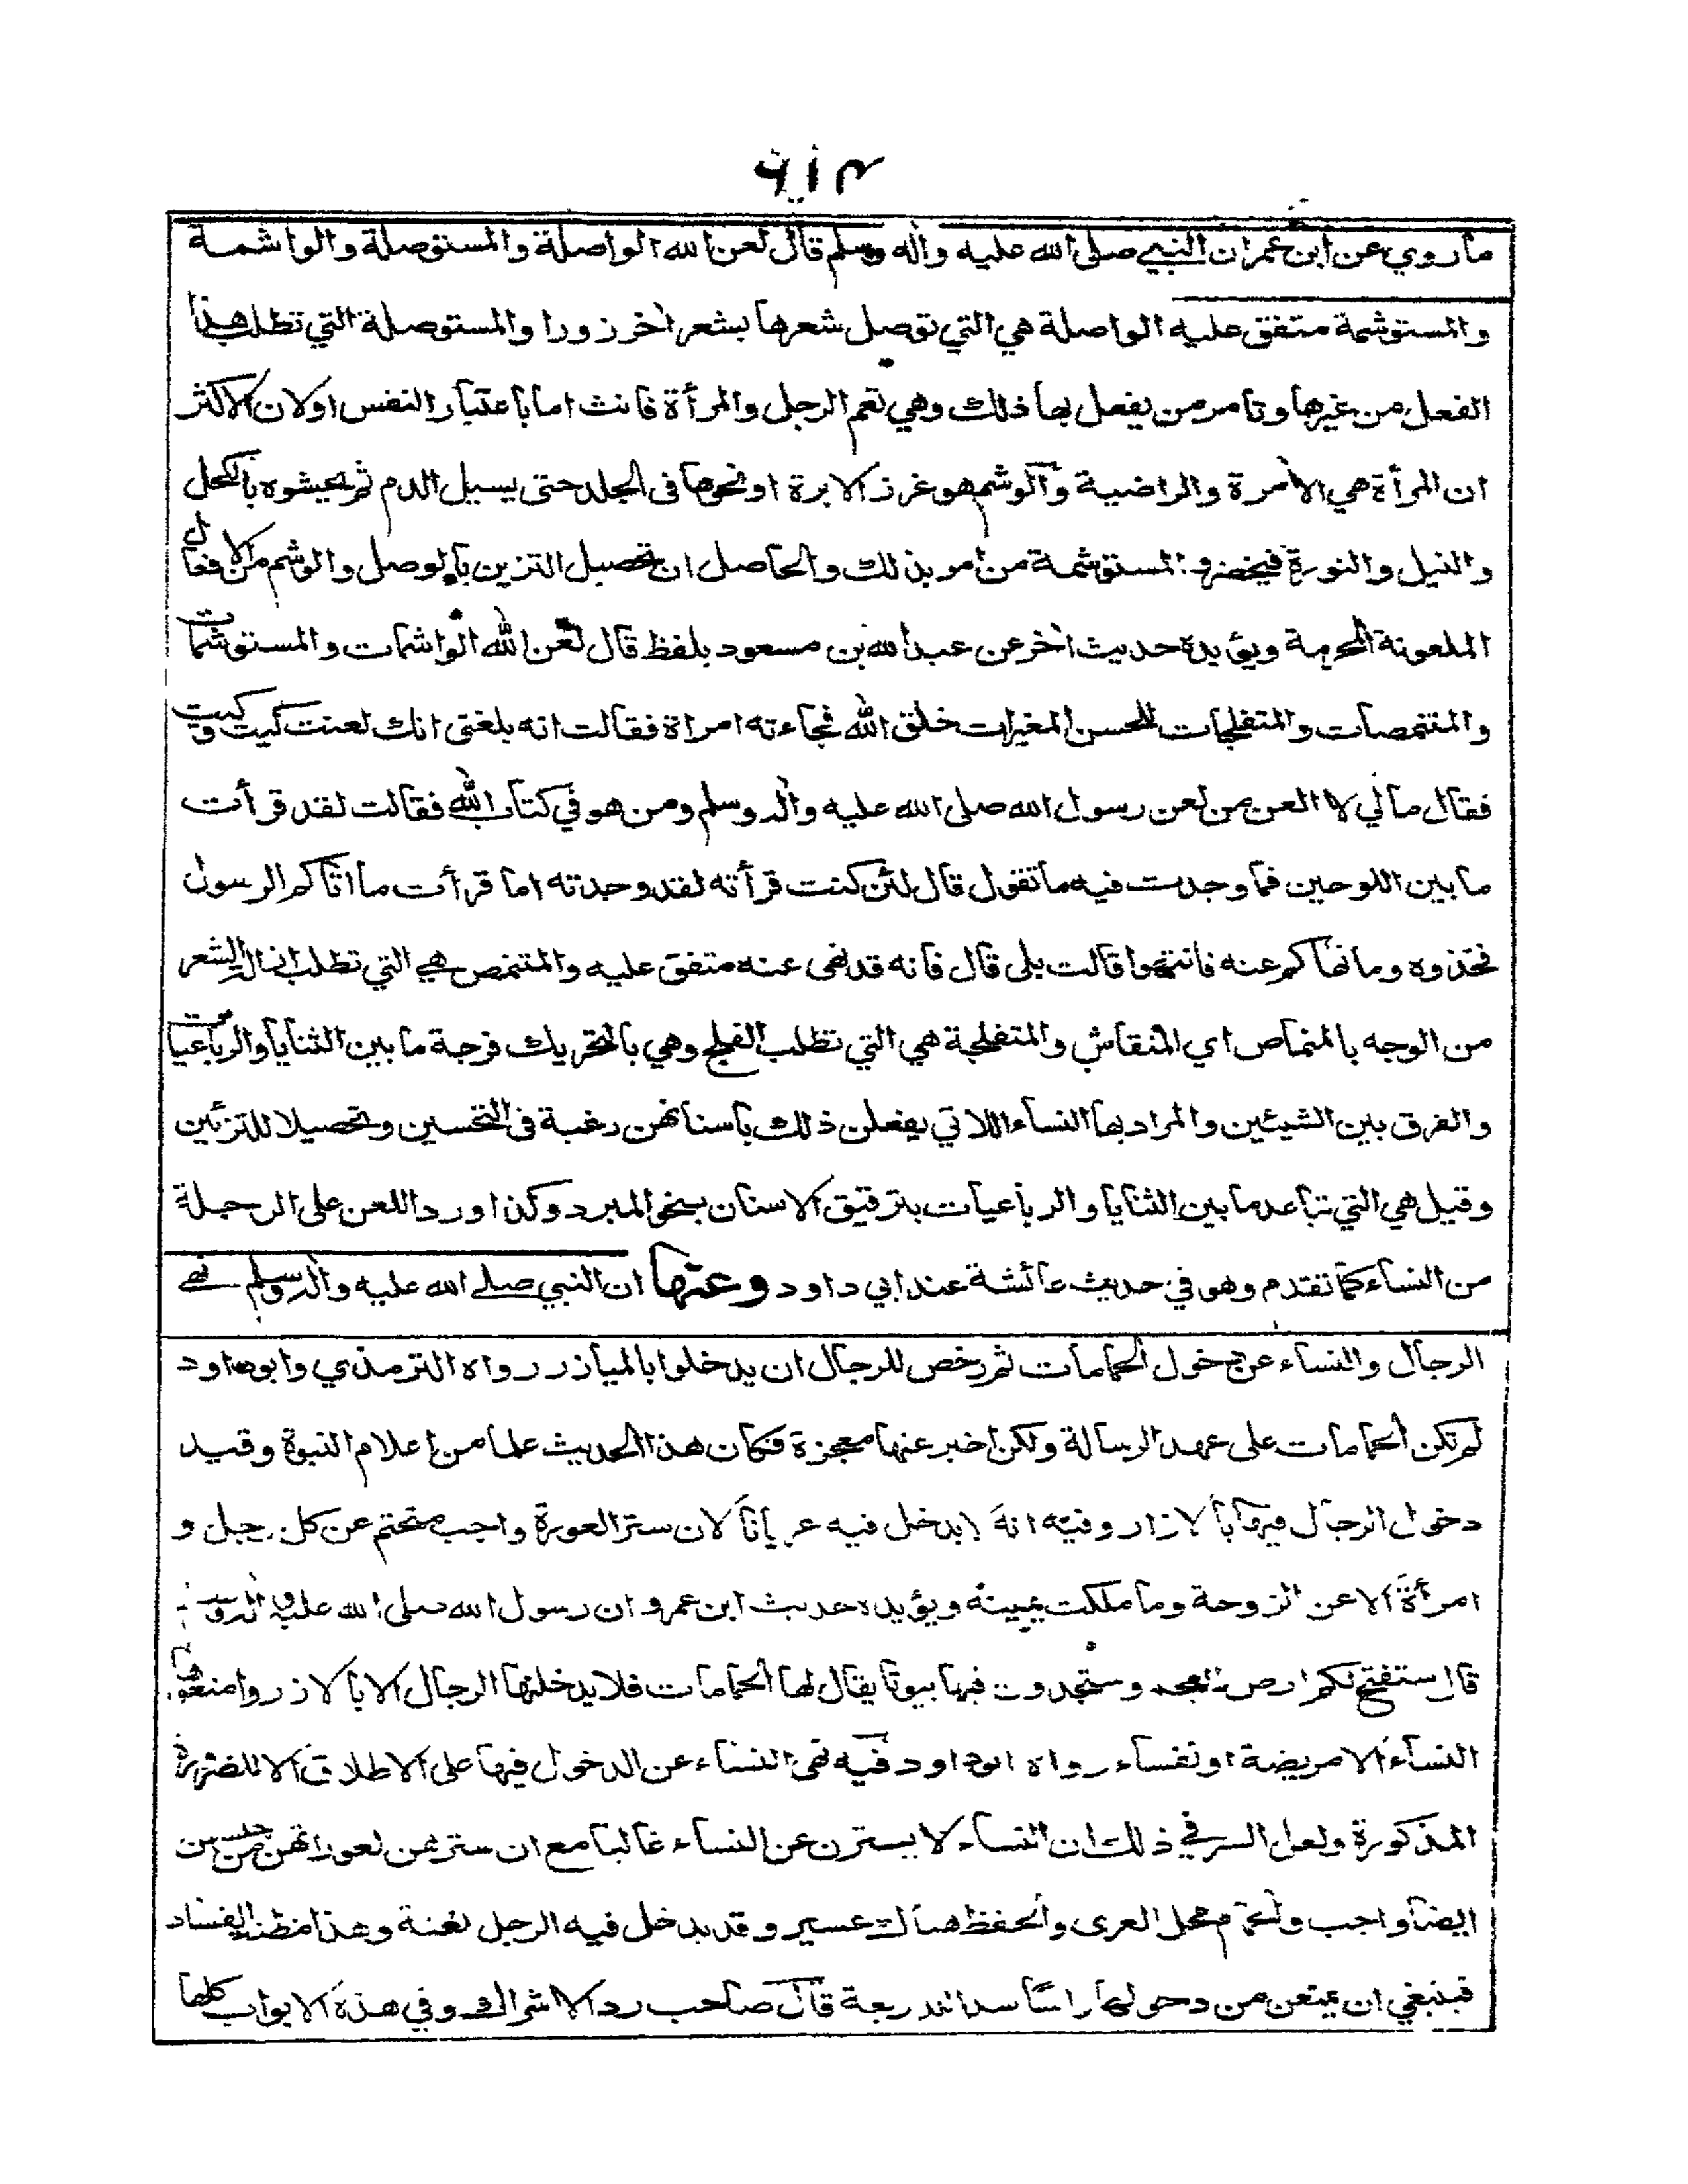 ما روي عن ابن عمر ان النبي صلى الله عليه واله وسلم قال لعن الله الواصلة والمستوصلة والواشمة
والمستوشمة متفق عليه الواصلة هي التي توصل شعرها بشعر اخر زورا والمستوصلة التي تطلب هذا
الفعل من غيرها وتامر من يفعل بها ذلك وهي تعم الرجل والمرأة فانث اما باعتبار النفس اولان الاكثر
ان المرأة هي الأمرة والراضية والوشم هو غرز الابرة او نحوها فى الجلد حتى يسيل الدم ثم يحيشوه بالكحل
والنيل والنورة فيخضر والمستوشمة من امر بذلك والحاصل ان تحصيل التزين بالوصل والوشم من الافعال
الملعونة المحرمة ويؤيده حديث اخر عن عبد الله بن مسعود بلفظ قال لعن الله الواشمات والمستوشمات
والمتنمصات والمتفلجات للحسن المغيرات خلق الله فجاءته امراة فقالت انه بلغنى انك لعنت كيت وكيت
فقال مالي لا العن من لعن رسول الله صلى الله عليه واله وسلم ومن هو في كتاب الله فقالت لقد قرأت
ما بين اللوحين فما وجدت فيه ما تقول قال لئن كنت قرأته لقد وجدته اما قرأت ما اتاكم الرسول
فخذوه وما نهاكم عنه فانتهوا قالت بلى قال فانه قد نهى عنه متفق عليه والمتنمص هي التي تطلب ازالة الشعر
من الوجه بالمنماص اي المنقاش والمتفلجة هي التي تطلب الفلج وهي بالتحريك فرجة ما بين الثنايا والرباعيات
والفرق بين الشيئين والمراد بها النساء اللاتي يفعلن ذلك باسنانهن رغبة فى التحسين وتحصيلا للتزئين
وقيل هي التي تباعد ما بين الثنايا والرباعيات بترقيق الاسنان بنحو المبرد وكذا ورد اللعن على الرجلة
من النساء كما تقدم وهو في حديث عائشة عند ابي داود وعنها ان النبي صلى الله عليه واله وسلم نهى
الرجال والنساء عن دخول الحمامات ثم رخص للرجال ان يدخلوا بالميازر رواه الترمذي وابوداود
لم تكن الحمامات على عهد الرسالة ولكن اخبر عنها معجزة فكان هذا الحديث علما من اعلام النبوة وقيد
دخول الرجال فيها بالازار وفيه انه لا يدخل فيه عريانا لان ستر العورة واجب متحتم عن كل رجل و
امرأة الا عن الزوجة وما ملكت يمينه ويؤيده حديث ابن عمرو ان رسول الله صلى الله عليه واله وسلم
قال ستفتح لكم ارض العجم وستجدون فيها بيوتا يقال لها الحمامات فلا يدخلنها الرجال الا بالازر وامنعوها
النساء الا مريضة او نفساء رواه ابوداود فيه نهى النساء عن الدخول فيها على الاطلاق الا للضرورة
المذكورة ولعل السر في ذلك ان النساء لا يسترن عن النساء غالبا مع ان سترهن لعوراتهن من جنسهن
ايضا واجب والحمام محل العرى والحفظ هناك عسير وقد يدخل فيه الرجل بغتة وهذا مظنة الفساد
فينبغي ان يمنعن من دخولها راسا سدا للذريعة قال صاحب رد الاشراك وفي هذه الابواب كلها